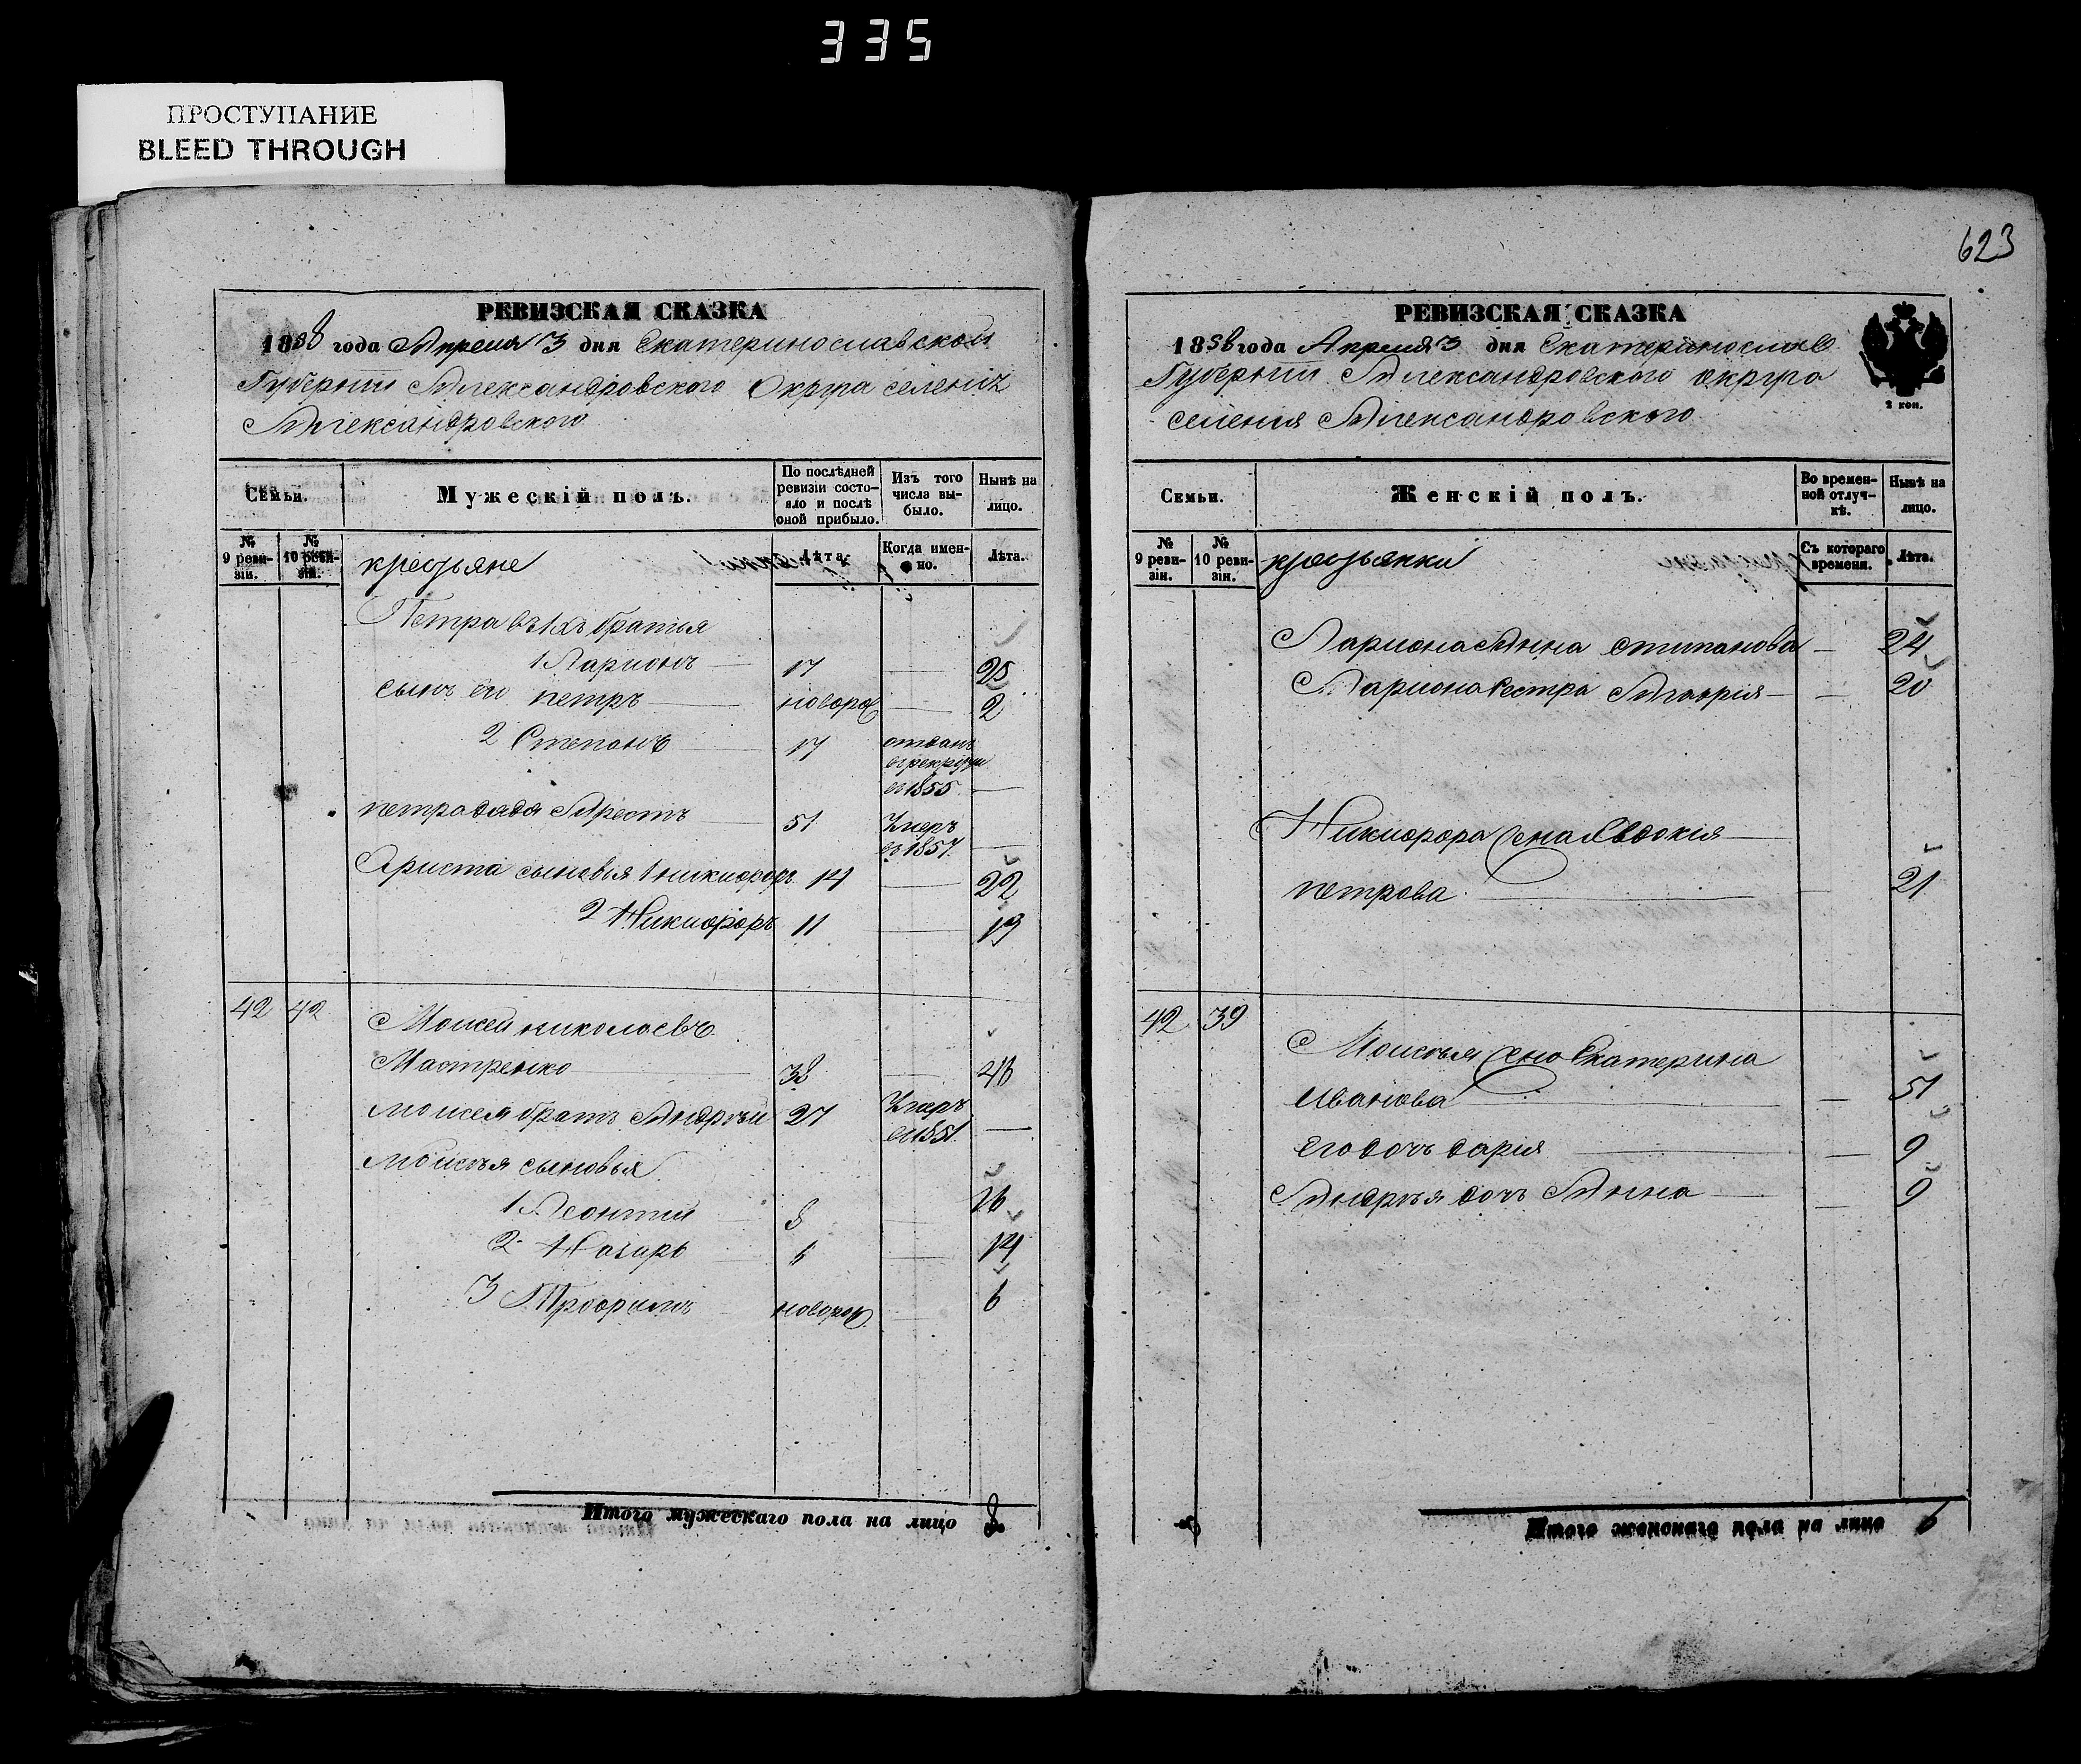 335
ПРОСТУПАНИЕ
BLEED THROUGH
РЕВИЗСКАЯ СКАЗКА
1858 года Апреля 3 дня Екатеринославской
Губернии Александровского Округа селенія
Александровского
Семьи.
Мужескій полъ.
По послѣдней ревизіи состояло и послѣ оной прибыло.
Изъ того числа выбыло.
Нынѣ на лицо.
№ 9 ревизіи.
№ 10 ревизіи.
крестьяне
Лѣта.
Когда именно.
Лѣта.
Петра братья
1 Ларионъ 17 25
сынъ его петръ новорож 2
2 Степанъ 17 отданъ в рекруты въ 1855
петра дядя Арестъ 51 Умеръ въ 1857
Ариста сыновья 1 никифоръ 14 22
2 Никифоръ 11 19
42 42 Моисей николаевъ
Мастренко 38 46
моисея братъ Андрѣй 27 Умеръ въ 1851
моисѣя сыновья
1 Леонтий 8 16
2 Назаръ 14
3 Трофимъ новорож 6
Итого мужескаго пола на лицо 8
623
РЕВИЗСКАЯ СКАЗКА
1858 года Апреля 3 дня Екатеринослав
Губернии Александровского округа
селения Александровского
2 коп.
Семьи.
Женскій полъ.
Во временной отлучкѣ.
Нынѣ на лицо.
№ 9 ревизіи.
№ 10 ревизіи.
крестьянки
Съ котораго времени.
Лѣта.
Лариона Анна степанова 24
Лариона сестра 20
Никифора жена Евдокия
петрова 21
42 39 Моисѣя жена Екатерина
Иванова 51
его дочь дария 9
Андрѣя дочь Анна 9
Итого женскаго пола на лицо 6